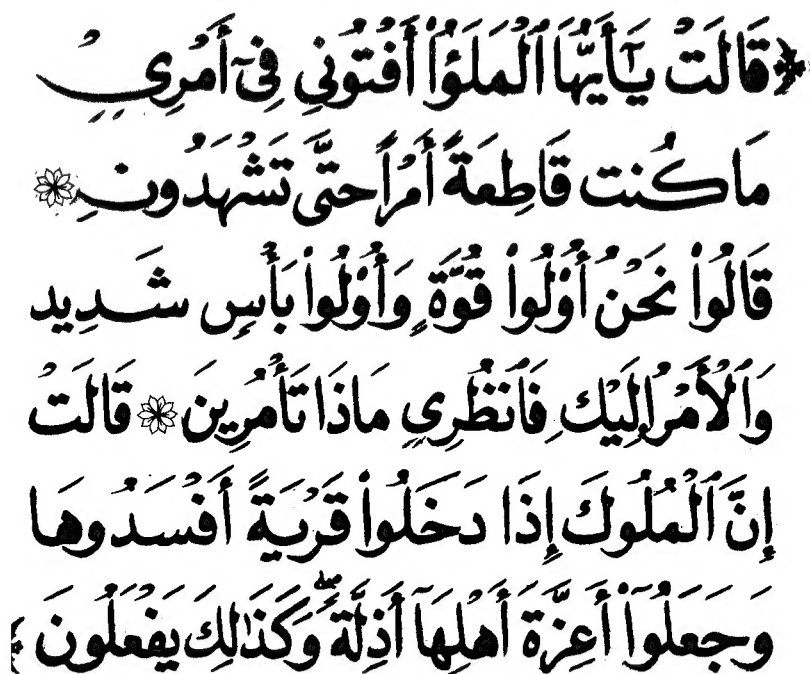 ﴿قَالَتْ يَـٰٓأَيُّهَا ٱلْمَلَؤُا۟ أَفْتُونِي فِىٓ أَمْرِي
مَا كُنتُ قَاطِعَةً أَمْرًا حَتَّىٰ تَشْهَدُونِ ۞
قَالُوا۟ نَحْنُ أُو۟لُوا۟ قُوَّةٍ وَأُو۟لُوا۟ بَأْسٍ شَدِيدٍ
وَٱلْأَمْرُ إِلَيْكِ فَٱنظُرِي مَاذَا تَأْمُرِينَ ۞ قَالَتْ
إِنَّ ٱلْمُلُوكَ إِذَا دَخَلُوا۟ قَرْيَةً أَفْسَدُوهَا
وَجَعَلُوٓا۟ أَعِزَّةَ أَهْلِهَآ أَذِلَّةً ۖ وَكَذَٰلِكَ يَفْعَلُونَ ﴾